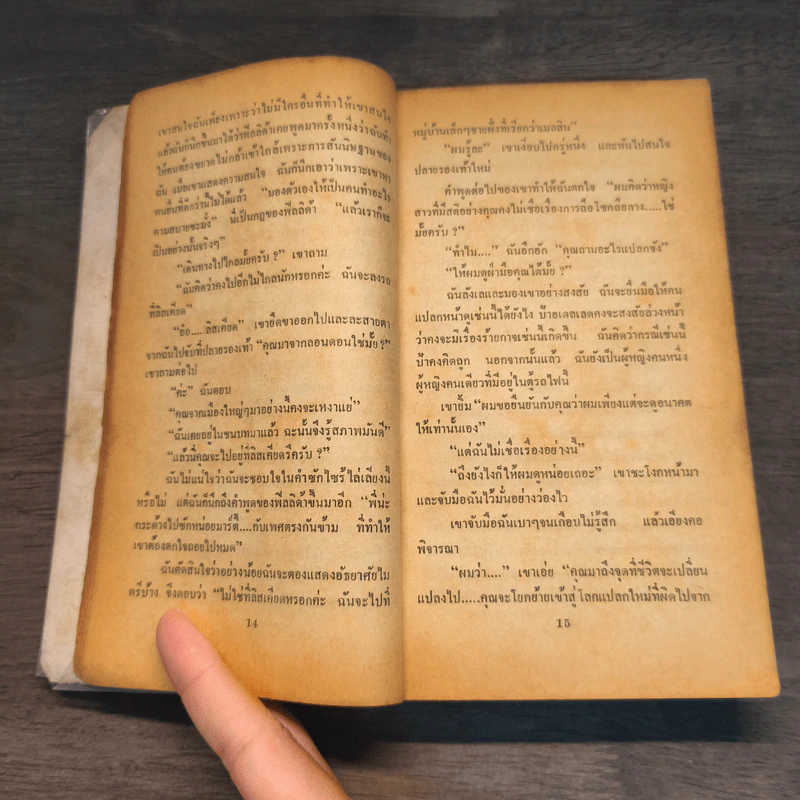 เขาสนใจฉันเพียงเพราะว่าไม่มีใครอื่นที่ทำให้เขาสนใจ
แล้วฉันก็นึกขึ้นมาได้ว่าฟิลลิด้าเคยพูดมาครั้งหนึ่งว่าฉันทำ
ให้คนต้องขยาดไม่กล้าเข้าใกล้เพราะการสันนิษฐานของ
ฉัน เมื่อเขาแสดงความสนใจ ฉันก็นึกเอาว่าเพราะเขาหา
คนอื่นที่ดีกว่านี้ไม่ได้แล้ว “มองตัวเองให้เป็นคนทำอะไร
ตามสบายซะมั่ง” นี่เป็นกฎของฟิลลิด้า “แล้วเราก็จะ
เป็นอย่างนั้นจริงๆ”
“เดินทางไปไกลมั้ยครับ ?” เขาถาม
“ฉันคิดว่าคงไปอีกไม่ไกลนักหรอกค่ะ ฉันจะลงรถ
ที่ลิสเคียด”
“อ้อ.....ลิสเคียด” เขายืดขาออกไปและละสายตา
จากฉันไปจับที่ปลายรองเท้า “คุณมาจากลอนดอนใช่มั้ย?”
เขาถามต่อไป
“ค่ะ” ฉันตอบ
“คุณจากเมืองใหญ่ๆมาอย่างนี้คงจะเหงาแย่”
“ฉันเคยอยู่ในชนบทมาแล้ว ฉะนั้นจึงรู้สภาพมันดี”
“แล้วนี่คุณจะไปอยู่ที่ลิสเคียดรึครับ ?”
ฉันไม่แน่ใจว่าฉันจะชอบใจในคำซักไซร้ไล่เลียงนี้
หรือไม่ แต่ฉันก็นึกถึงคำพูดของฟิลลิด้าขึ้นมาอีก “พี่น่ะ
กระด้างไปซักหน่อยมาร์ตี้....กับเพศตรงกันข้าม ที่ทำให้
เขาต้องตกใจถอยไปหมด”
ฉันตัดสินใจว่าอย่างน้อยฉันจะต้องแสดงอัธยาศัยไม
ตรีบ้าง จึงตอบว่า “ไม่ใช่ที่ลิสเคียดหรอกค่ะ ฉันจะไปที่
14
หมู่บ้านเล็กๆชายฝั่งที่เรียกว่าเมลลิน”
“ผมรู้ละ” เขาเงียบไปครู่หนึ่ง และหันไปสนใจ
ปลายรองเท้าใหม่
คำพูดต่อไปของเขาทำให้ฉันตกใจ “ผมคิดว่าหญิง
สาวที่มีสติอย่างคุณคงไม่เชื่อเรื่องการถือโชคถือลาง.....ใช่
มั้ยครับ ?
“ทำไม....” ฉันอึกอัก “คุณถามอะไรแปลกจัง”
“ให้ผมดูฝ่ามือคุณได้มั้ย ?”
ฉันลังเลและมองเขาอย่างสงสัย ฉันจะยื่นมือให้คน
แปลกหน้าดูเช่นนี้ได้ยังไง ป้าอเดลเลดคงจะสงสัยล่วงหน้า
ว่าคงจะมีเรื่องร้ายกาจเช่นนี้เกิดขึ้น ฉันคิดว่ากรณีเช่นนี้
ป้าคงคิดถูก นอกจากนั้นแล้ว ฉันยังเป็นผู้หญิงคนหนึ่ง
ผู้หญิงคนเดียวที่มีอยู่ในตู้รถไฟนี้
เขายิ้ม “ผมขอยืนยันกับคุณว่าผมเพียงแต่จะดูอนาคต
ให้เท่านั้นเอง”
“แต่ฉันไม่เชื่อเรื่องอย่างนี้”
“ถึงยังไงก็ให้ผมดูหน่อยเถอะ” เขาชะโงกหน้ามา
และจับมือฉันไว้มั่นอย่างว่องไว
เขาจับมือฉันเบาๆจนเกือบไม่รู้สึก แล้วเอียงคอ
พิจารณา
“ผมว่า....” เขาเอ่ย “คุณมาถึงจุดที่ชีวิตจะเปลี่ยน
แปลงไป.....คุณจะโยกย้ายเข้าสู่ โลกแปลกใหม่ที่ผิดไปจาก
15